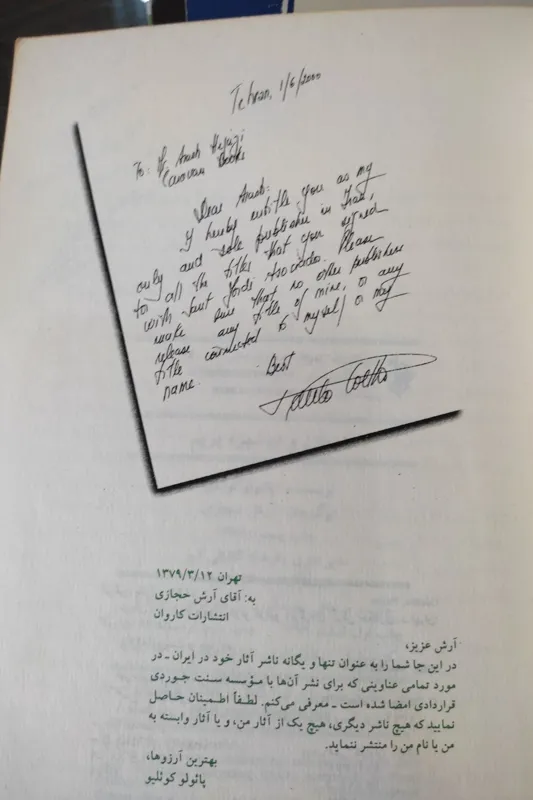 Tehran, 1/6/2000
To: Mr Arash Hejazi
Caravan Books
Dear Arash:
I hereby entitle you as my
only and sole publisher in Iran,
to all the titles that you signed
with Sant Jordi Asociados. Please
make sure that no other publisher
release any title of mine, or any
title connected to myself or my
name.
Best
Paulo Coelho
تهران ۱۳۷۹/۳/۱۲
به: آقای آرش حجازی
انتشارات کاروان
آرش عزیز،
در این جا شما را به عنوان تنها و یگانه ناشر آثار خود در ایران ـ در
مورد تمامی عناوینی که برای نشر آن‌ها با مؤسسه سنت جوردی
قراردادی امضا شده است ـ معرفی می‌کنم. لطفاً اطمینان حاصل
نمایید که هیچ ناشر دیگری، هیچ یک از آثار من، و یا آثار وابسته به
من یا نام من را منتشر ننماید.
بهترین آرزوها،
پائولو کوئلیو